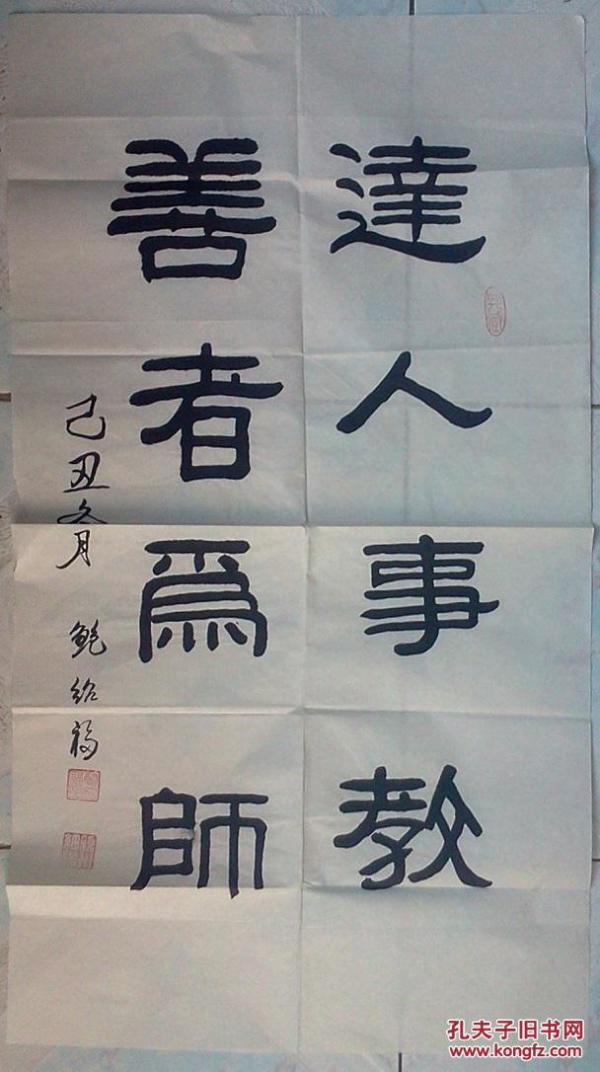 達人事教
善者爲師
己丑冬月 鲍绍福
孔夫子旧书网
www.kongfz.com